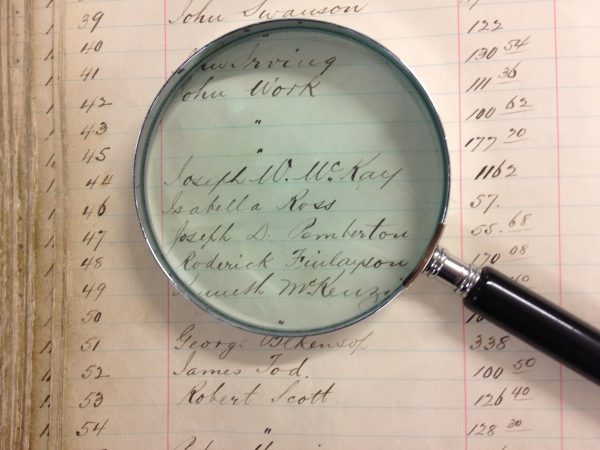 39 John Swanson
40 " 122
41 Irving 130 54
42 John Work 111 36
43 " 100 62
45 " 177 20
44 Joseph W. McKay 1162
46 Isabella Ross 57.
47 Joseph D. Pemberton 55.68
48 Roderick Finlayson 170 08
49 Kenneth McKenzie 40
50 "
51 George Blenkinsop 338
52 James Tod. 100 50
53 Robert Scott 126 40
54 " 128 30